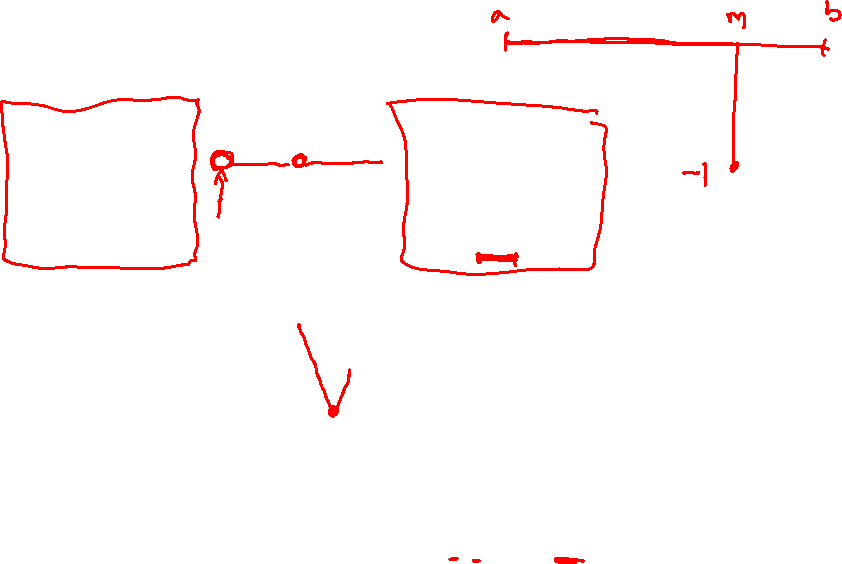 a m b
-1